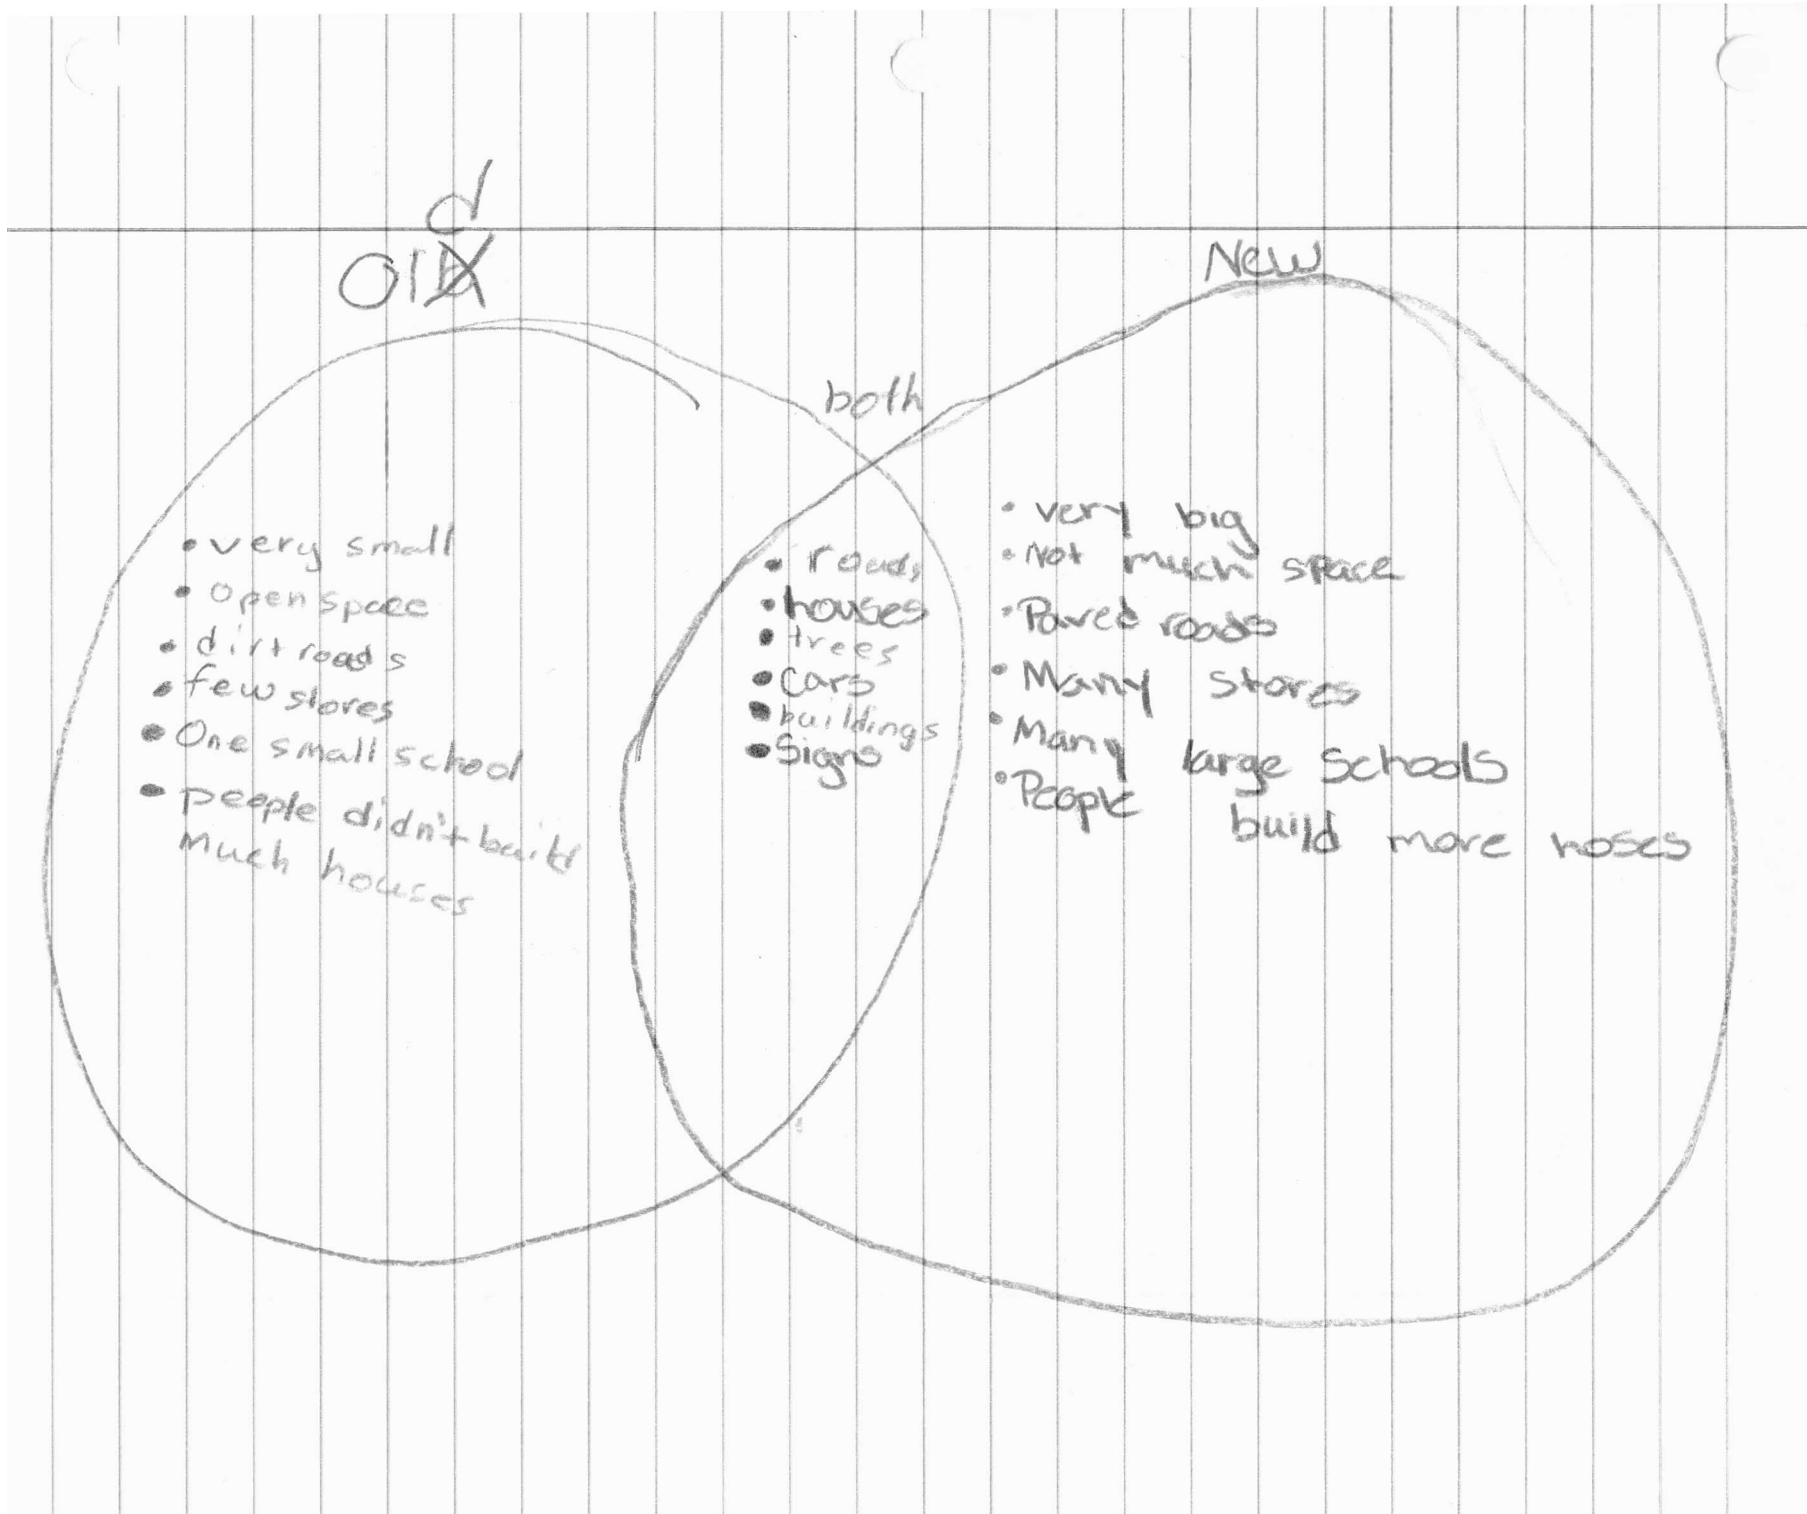 Old
• very small
• Open space
• dirt roads
• few stores
• One small school
• people didn't build
much houses
both
• roads
• houses
• trees
• cars
• buildings
• Signs
New
• very big
• Not much space
• Paved roads
• Many stores
• Many large Schools
• People build more hoses